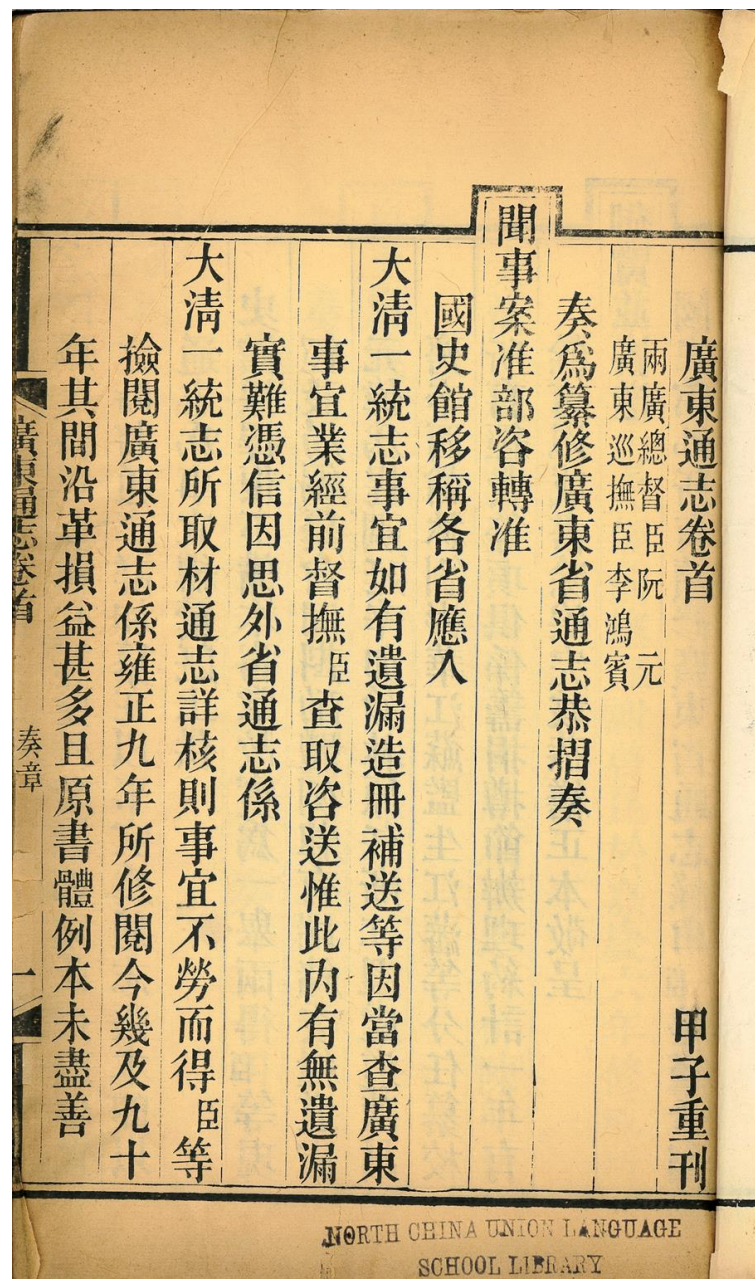 廣東通志卷首 甲子重刊
兩廣總督臣阮 元
廣東巡撫臣李鴻賓
奏爲纂修廣東省通志恭摺奏
聞事案准部咨轉准
國史館移稱各省應入
大清一統志事宜如有遺漏造冊補送等因當查廣東
事宜業經前督撫臣查取咨送惟此內有無遺漏
實難憑信因思外省通志係
大清一統志所取材通志詳核則事宜不勞而得臣等
撿閱廣東通志係雍正九年所修閱今幾及九十
年其間沿革損益甚多且原書體例本未盡善
廣東通志卷首 奏章 一
NORTH CHINA UNION LANGUAGE
SCHOOL LIBRARY